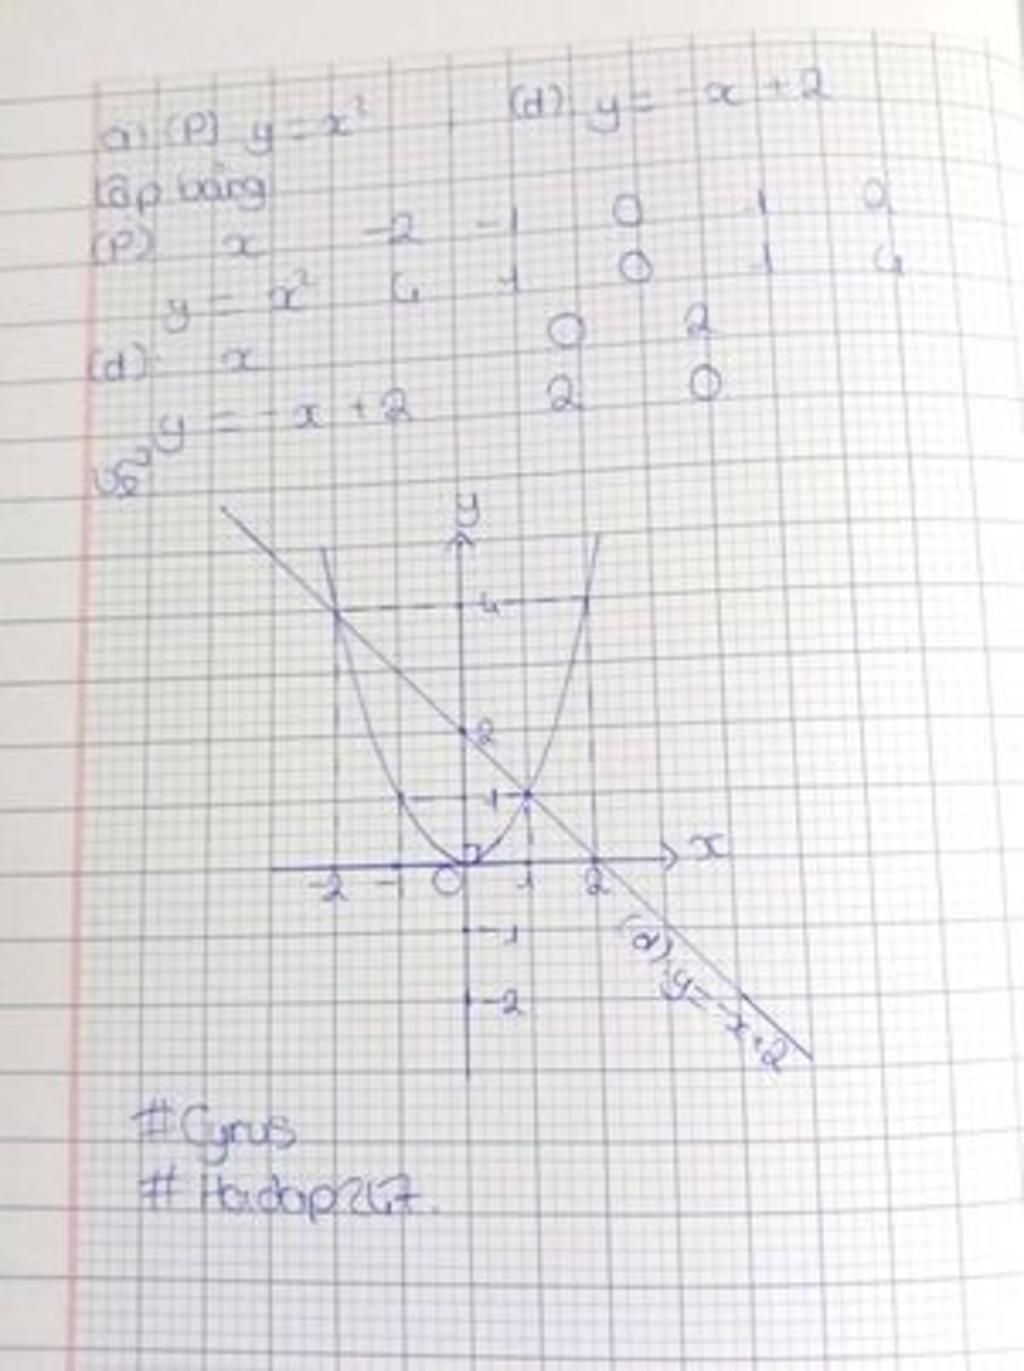 a) (P) y = x² (d) y = -x + 2
Lập bảng
(P) x -2 -1 0 1 2
y = x² 4 1 0 1 4
(d): x 0 2
y = -x + 2 2 0
Vẽ
y
4
2
1
x
-2 -1 O 1 2
-1
-2
(d): y = -x + 2
#Cyrus
#Hoidap247.